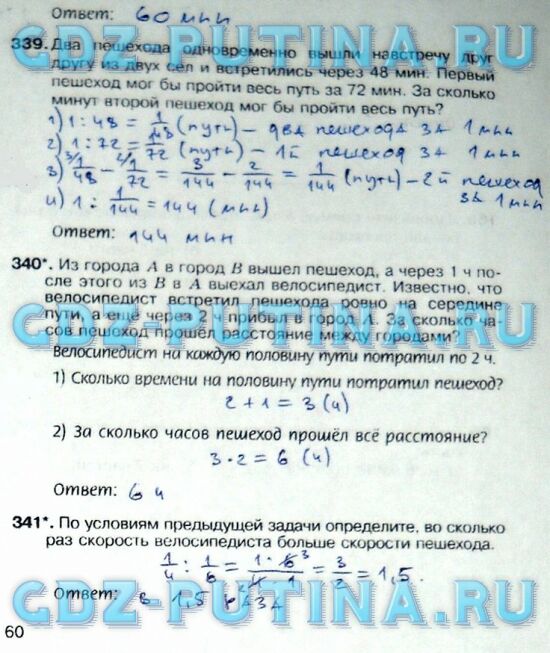 Ответ: 60 мин
GDZ-PUTINA.RU
339. Два пешехода одновременно вышли навстречу друг
другу из двух сел и встретились через 48 мин. Первый
пешеход мог бы пройти весь путь за 72 мин. За сколько
минут второй пешеход мог бы пройти весь путь?
1) 1 : 48 = 1/48 (путь) – два пешехода за 1 мин
2) 1 : 72 = 1/72 (путь) – 1й пешеход за 1 мин
3) 3/1/48 – 2/1/72 = 3/144 – 2/144 = 1/144 (путь) – 2й пешеход
за 1 мин
4) 1 : 1/144 = 144 (мин)
GDZ-PUTINA.RU
Ответ: 144 мин
340*. Из города А в город В вышел пешеход, а через 1 ч по-
сле этого из В в А выехал велосипедист. Известно, что
велосипедист встретил пешехода ровно на середине
пути, а ещё через 2 ч прибыл в город А. За сколько ча-
сов пешеход прошёл расстояние между городами?
GDZ-PUTINA.RU
Велосипедист на каждую половину пути потратил по 2 ч.
1) Сколько времени на половину пути потратил пешеход?
2 + 1 = 3 (ч)
2) За сколько часов пешеход прошёл всё расстояние?
3 · 2 = 6 (ч)
Ответ: 6 ч
341*. По условиям предыдущей задачи определите, во сколько
раз скорость велосипедиста больше скорости пешехода.
1/4 : 1/6 = 1 · 6 3/4 · 1 = 3/2 = 1,5.
Ответ: в 1,5 раза
GDZ-PUTINA.RU
60